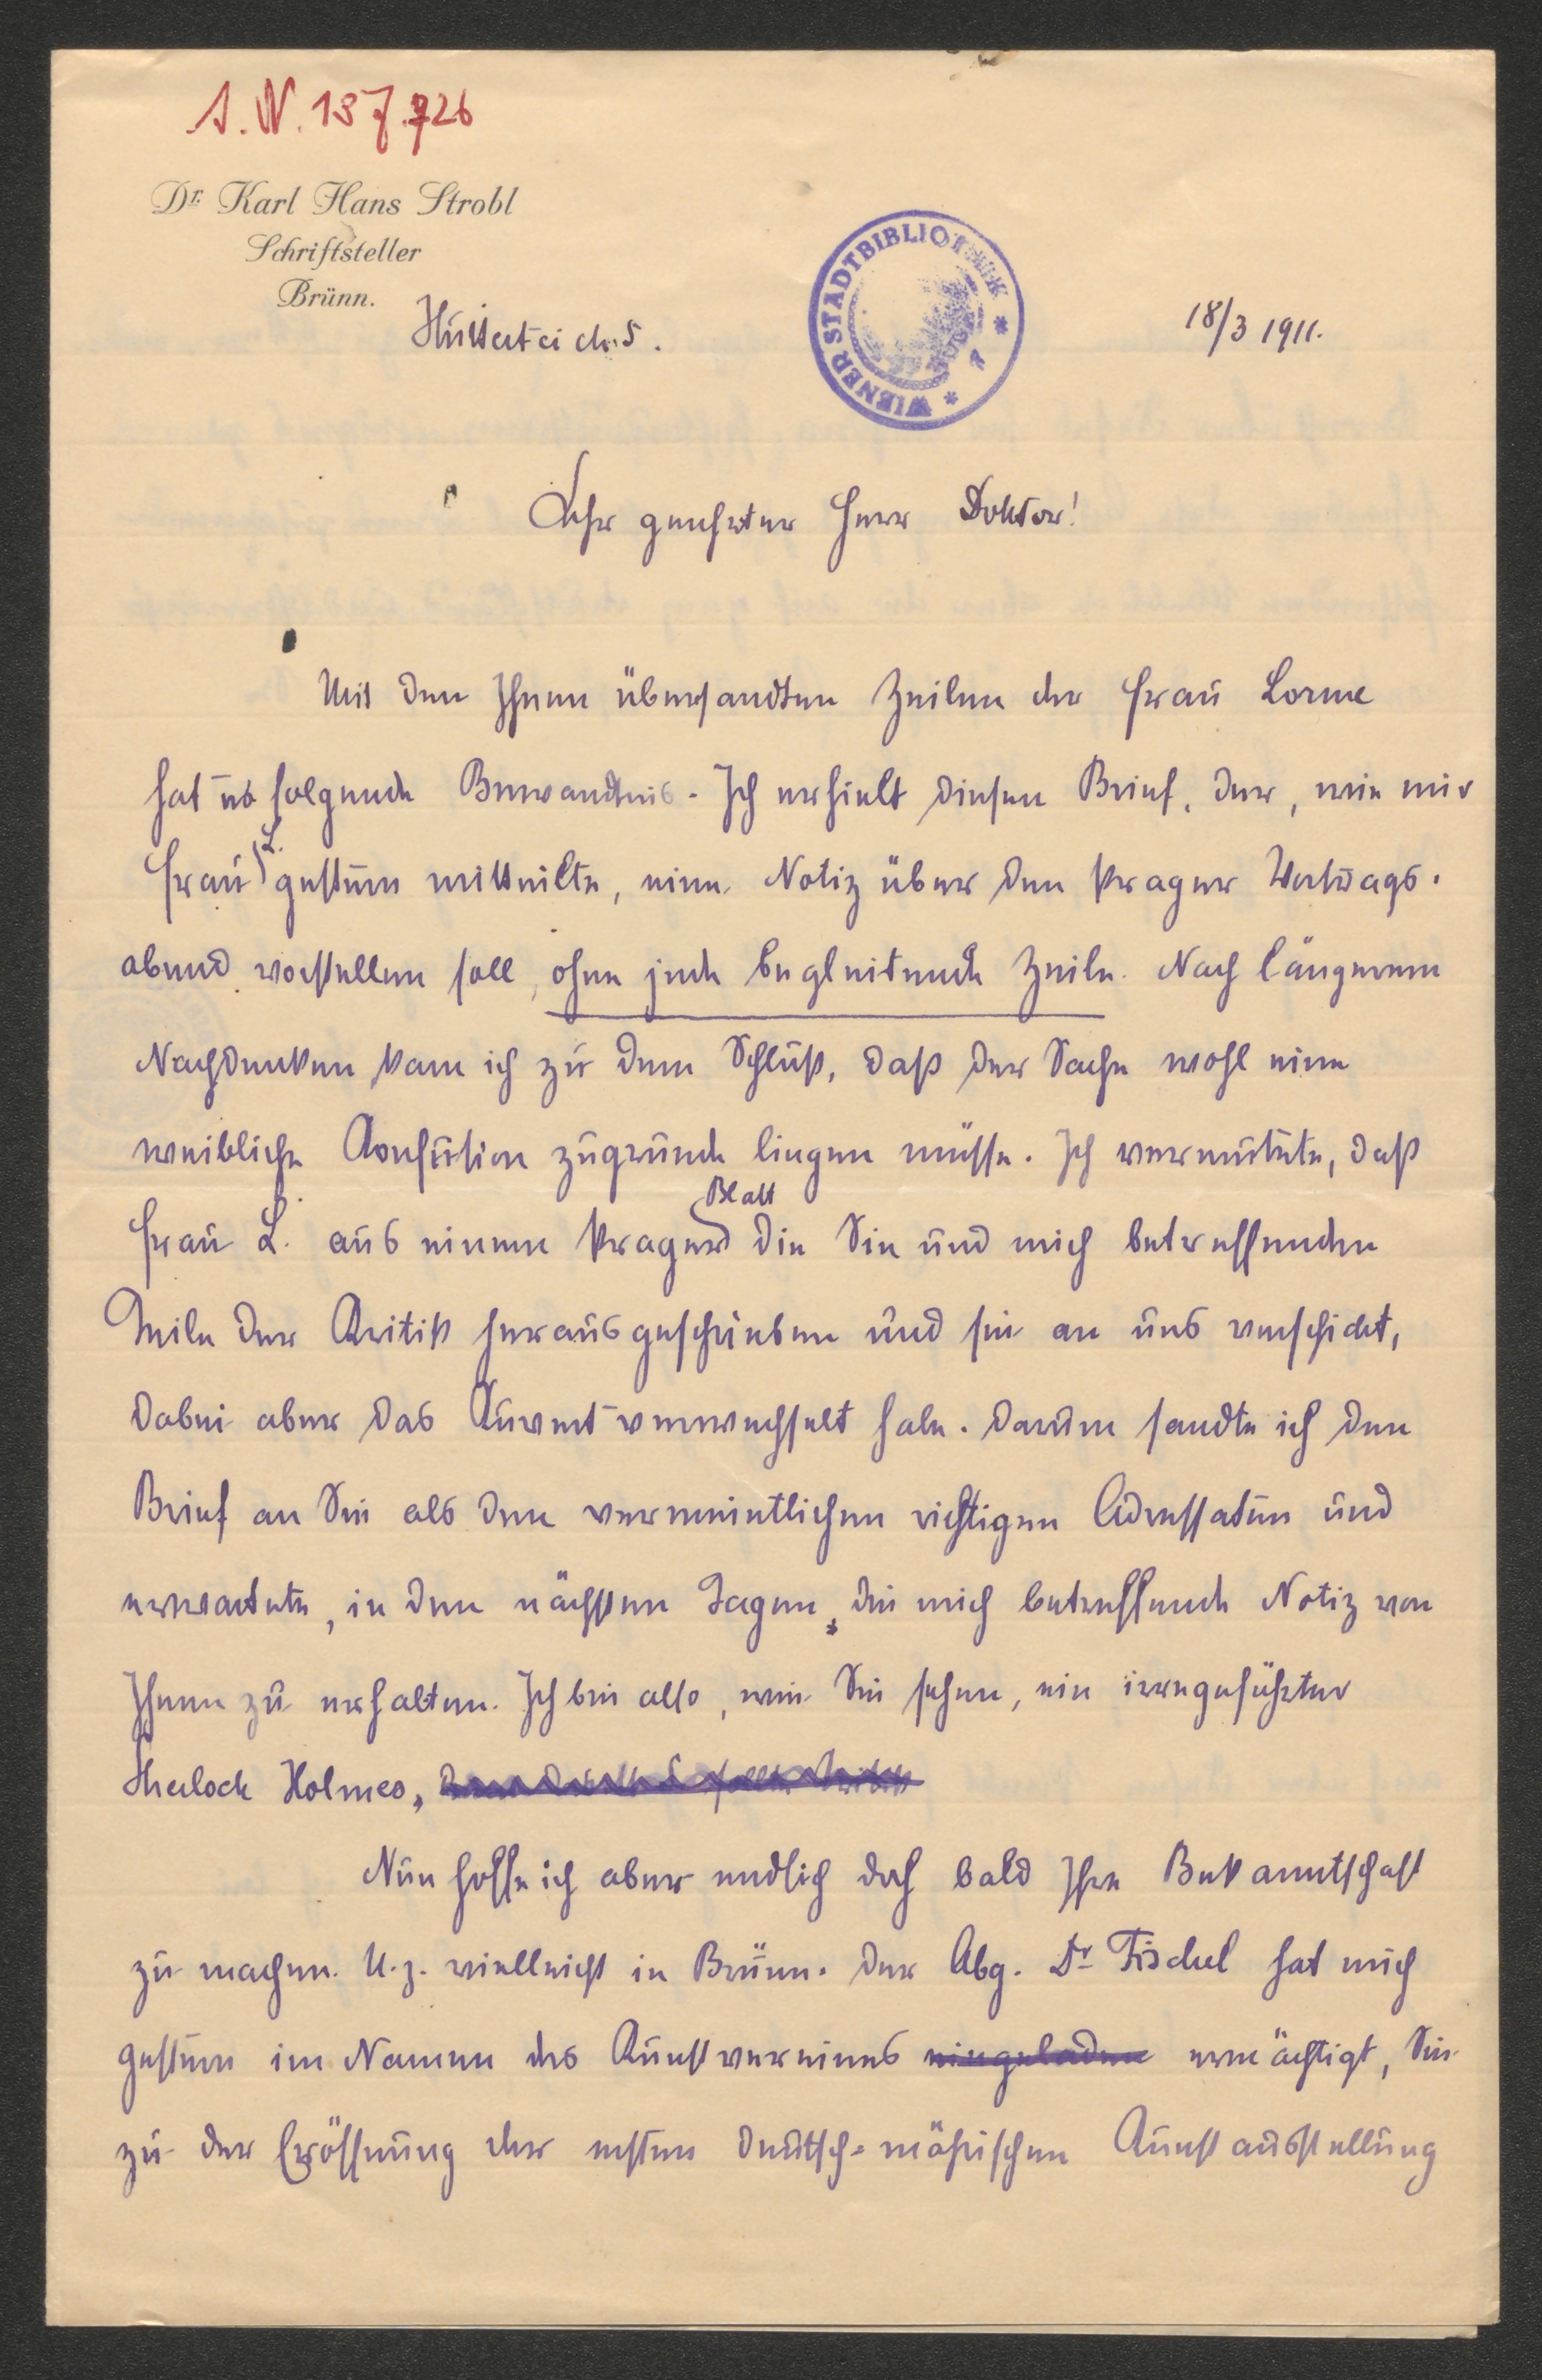 I.N. 137.726
Dr. Karl Hans Strobl
Schriftsteller
Brünn.
18/3 1911.
WIENER STADTBIBLIOTHEK * 7 *
Sehr geehrter Herr Doktor!
Mit den Ihnen übersandten Zeilen der Frau Lorme
hat es folgende Bewandtnis. Ich erhielt diesen Brief, der, wie mir
Frau L. gestern mitteilte, eine Notiz über den Prager Vortrags-
abend vorstellen soll, ohne jede begleitende Zeile. Nach längerem
Nachdenken kam ich zu dem Schluß, daß der Sache wohl eine
weibliche Konfusion zugrunde liegen müsse. Ich vermutete, daß
Frau L. aus einem Prager Blatt die Sie und mich betreffenden
Teile der Kritik herausgeschrieben und sie an uns verschickt,
dabei aber das Kuvert verwechselt habe. Darum sandte ich den
Brief an Sie als den vermeintlichen richtigen Adressaten und
erwartete, in den nächsten Tagen die mich betreffende Notiz von
Ihnen zu erhalten. Ich bin also, wie Sie sehen, ein irregeführter
Sherlock Holmes,
Nun hoffe ich aber endlich doch bald Ihre Bekanntschaft
zu machen. U. z. vielleicht in Brünn. Der Abg. Dr Fischel hat mich
gestern im Namen des Kunstvereines eingeladen ermächtigt, Sie
zu der Eröffnung der ersten deutsch-mährischen Kunstausstellung